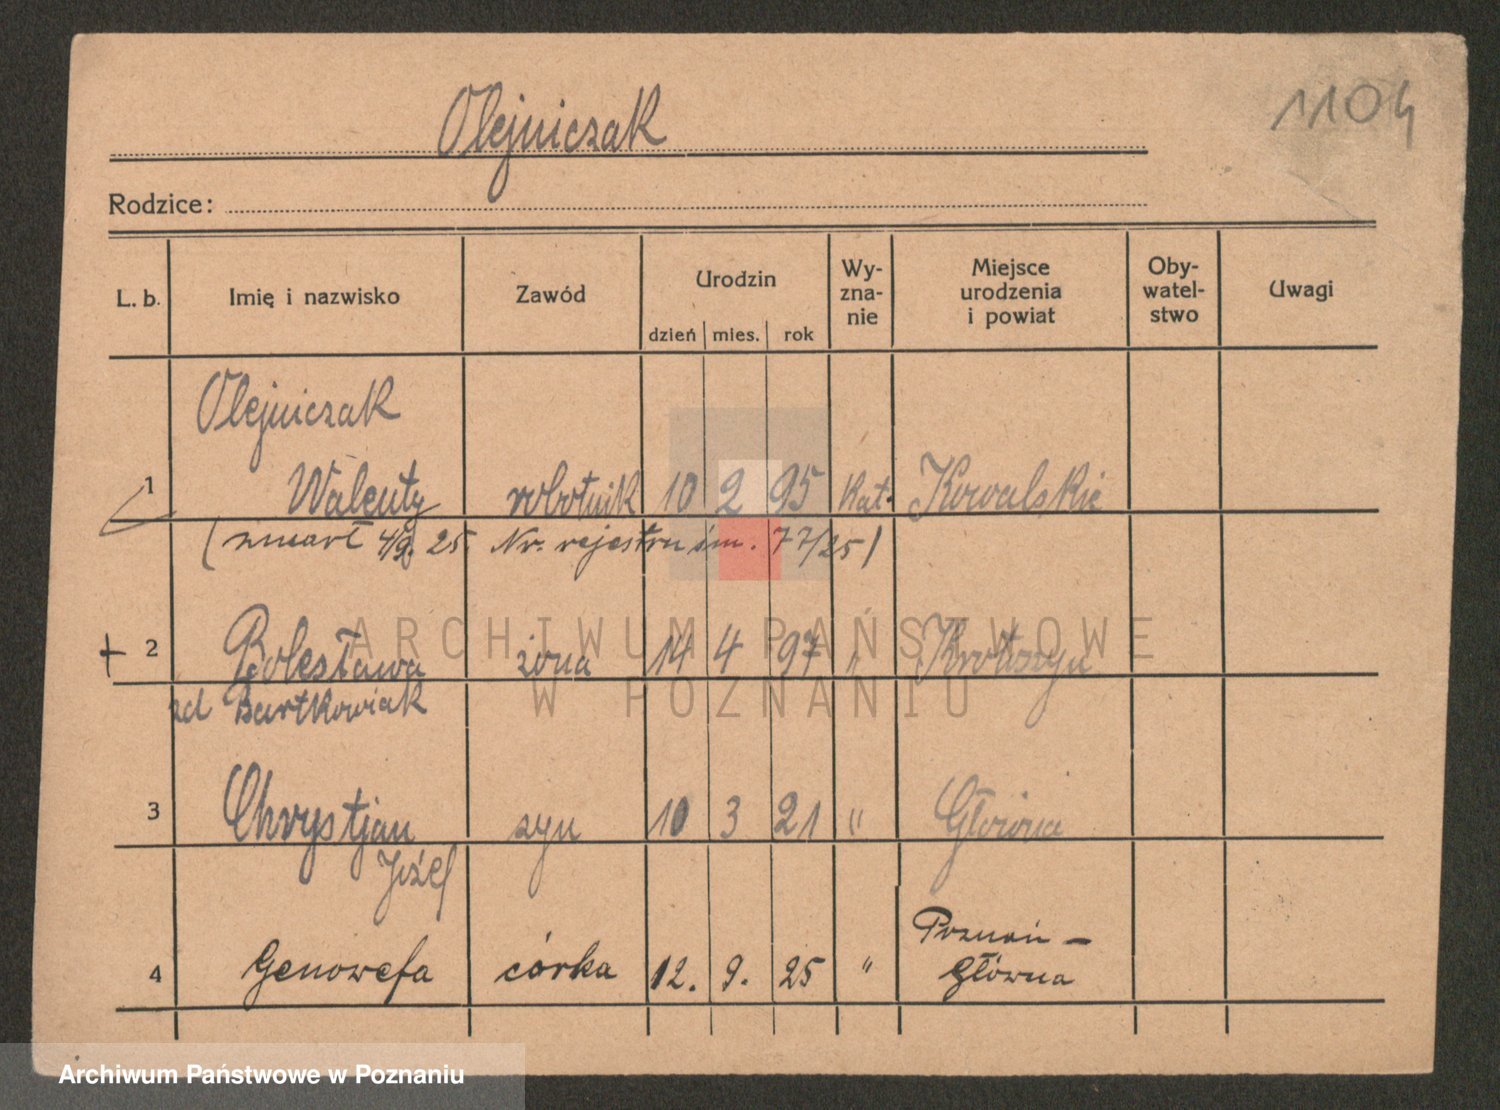 Olejniczak
1104
Rodzice:
L. b.
Imię i nazwisko
Zawód
Urodzin
dzień mies. rok
Wy-
zna-
nie
Miejsce
urodzenia
i powiat
Oby-
watel-
stwo
Uwagi
Olejniczak
1 Walenty robotnik 10 2 95 kat. Kowalskie
(zmarł 4/9. 25. Nr. rejestru śm. 77/25)
+ 2 Bolesława żona 14 4 97 " Krotoszyn
zd Bartkowiak
3 Chrystjan syn 10 3 21 " Główna
Józef
Poznań -
4 Genowefa córka 12. 9. 25 " Główna
ARCHIWUM PAŃSTWOWE
W POZNANIU
Archiwum Państwowe w Poznaniu